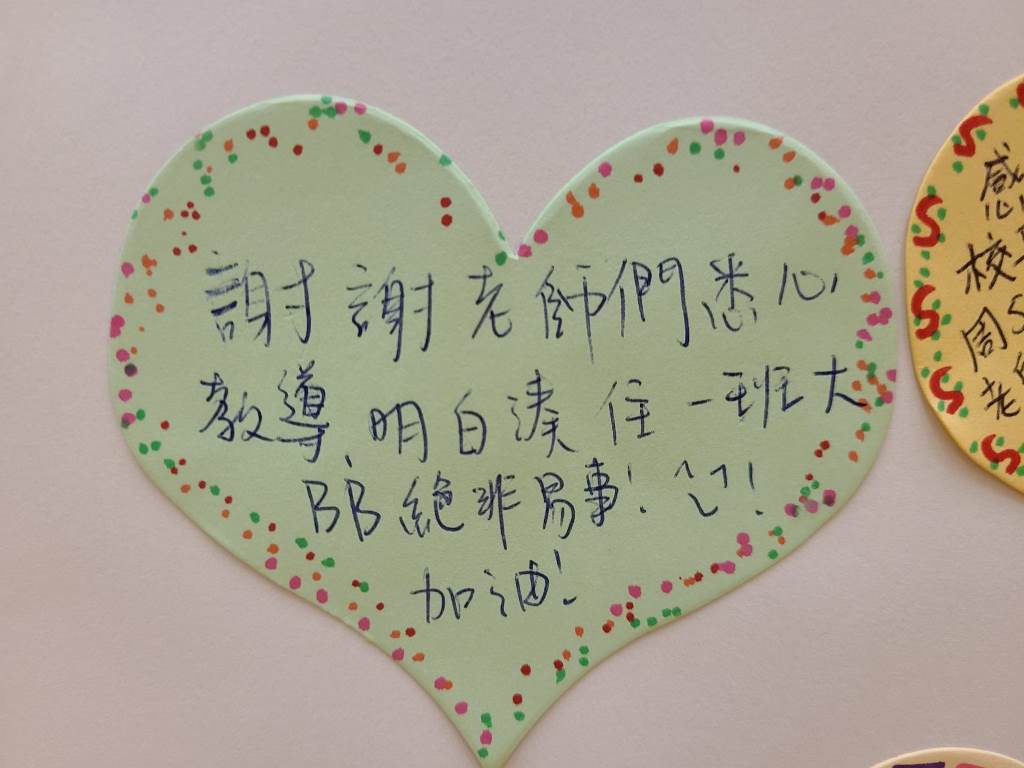 謝謝老師們悉心
教導,明白湊住一班大
BB絕非易事! ^し^!
加油!
感
校
周S
老